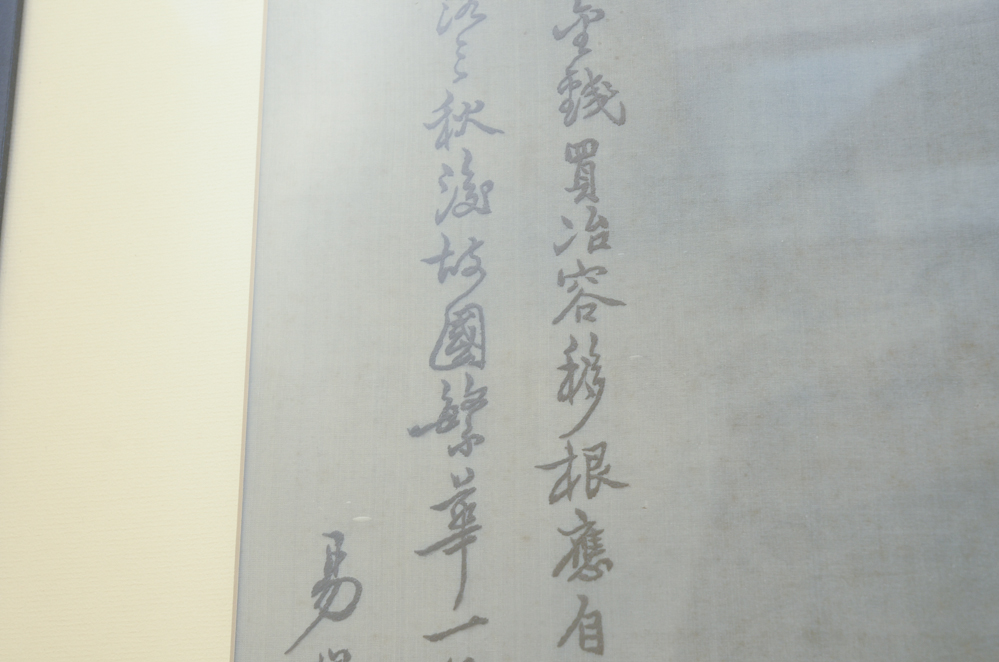 金錢買冶容移根應自
落〻秋後故國繁華一
易